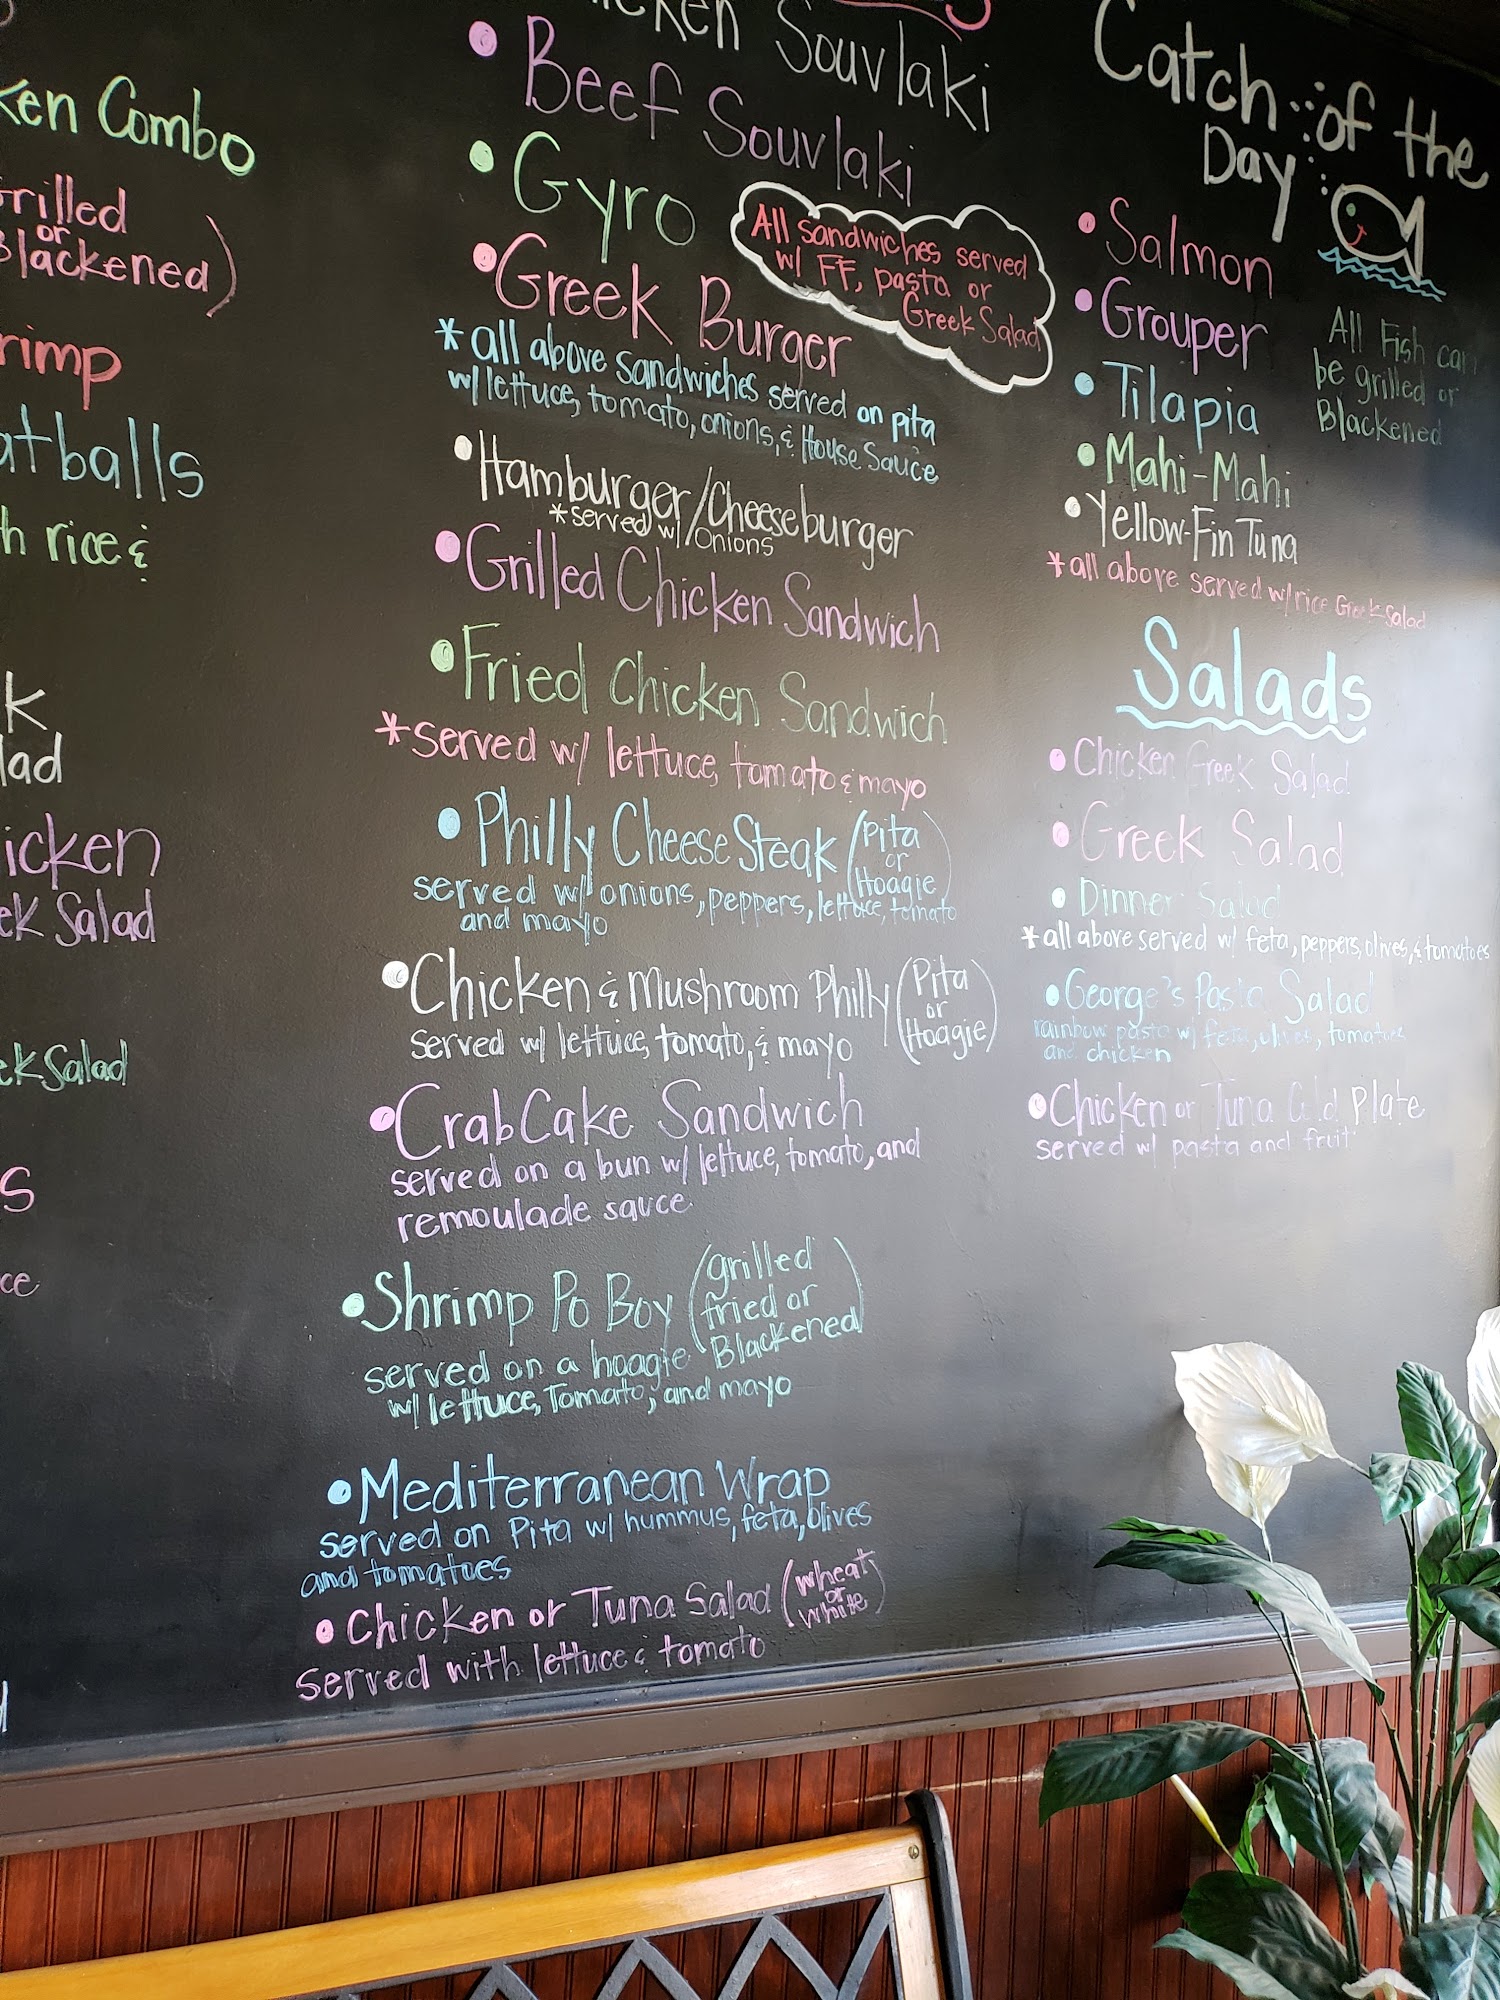 Combo
Grilled
or
Blackened)
atballs
rice &
Salad
Salad
Souvlaki
• Beef Souvlaki
• Gyro
• Greek Burger
All sandwiches served
w/ FF, pasta or
Greek Salad
*all above sandwiches served on pita
w/ lettuce, tomato, onions, & House Sauce
• Hamburger/Cheeseburger
*served w/ onions
• Grilled Chicken Sandwich
• Fried Chicken Sandwich
*served w/ lettuce, tomato & mayo
• Philly Cheese Steak (Pita
or
Hoagie)
served w/ onions, peppers, lettuce, tomato
and mayo
• Chicken & Mushroom Philly (Pita
or
Hoagie)
served w/ lettuce, tomato, & mayo
• Crab Cake Sandwich
served on a bun w/ lettuce, tomato, and
remoulade sauce
• Shrimp Po Boy (grilled
fried or
Blackened)
served on a hoagie
w/ lettuce, Tomato, and mayo
• Mediterranean Wrap
served on Pita w/ hummus, feta, olives
and tomatoes
• Chicken or Tuna Salad (wheat
or
white)
served with lettuce & tomato
Catch of the
Day
• Salmon
• Grouper
• Tilapia
• Mahi-Mahi
• Yellow-Fin Tuna
All Fish can
be grilled or
Blackened
*all above served w/ rice Greek Salad
Salads
• Chicken Greek Salad
• Greek Salad
• Dinner Salad
*all above served w/ feta, peppers, olives, & tomatoes
• George's Pasta Salad
rainbow pasta w/ feta, olives, tomatoes
and chicken
• Chicken or Tuna Cold Plate
served w/ pasta and fruit